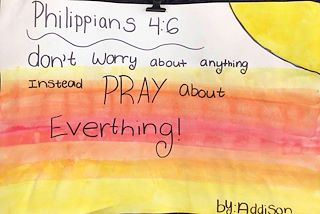 Philippians 4:6
don't worry about anything
Instead PRAY about
Everthing!
by: Addison